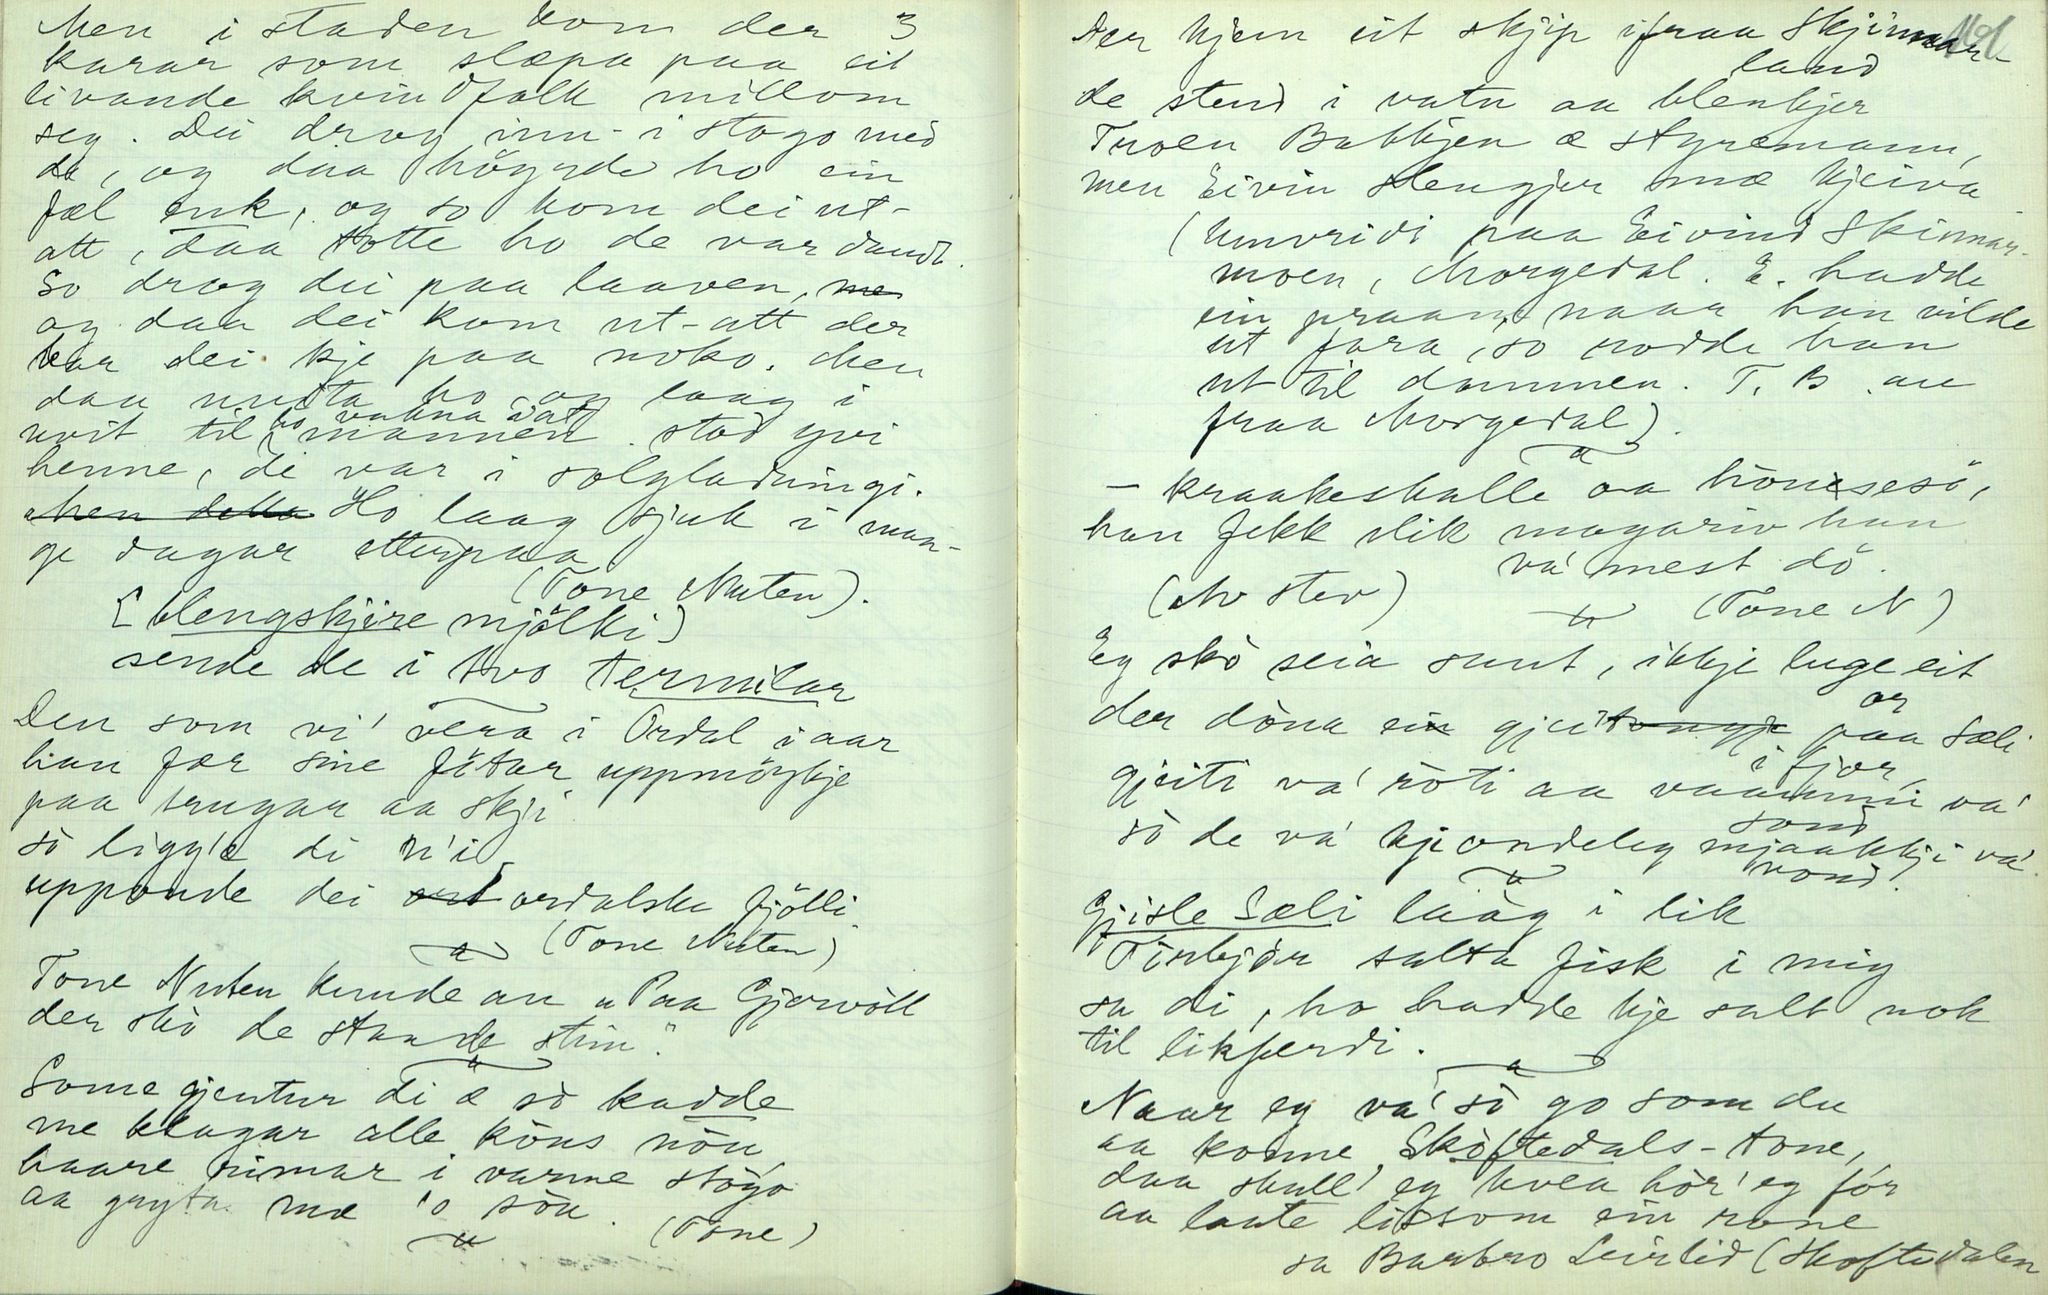 Men i staden kom der 3
karar som slæpa paa eit
livande kvindfolk millom
seg. Dei drog inn-i stogo med
da, og daa höyrde ho ein
fæl enk, og so kom dei ut-
att, daa totte ho de var daudt.
So drog dei paa laaven, me
og daa dei kom ut-att der
bar dei kje paa noko. Men
daa mista ho og laag i
uvit til ho vakna daa
mannen stod yvi
henne, de var i solgladningi.
Men detta Ho laag sjuk i man-
ge dagar etterpaa
(Tone Nuten).
[blengskjire mjölki]
sende de i tvo termilar
Den som vi' vera i Ordal i aar
han fær sine fötar uppmöykje
paa trugar aa skji
so ligg'e di n'i
upponde dei ordalske fjölli
(Tone Nuten)
Tone Nuten kunde au "Paa Gjervöll
der sko de staande stim".
Some gjentur di æ so kadde
me klagar alle köns nön
haare rimar i varme stógo
aa gryta mæ 'o sön. (Tone)
161
Der kjem eit skjip ifraa Skjinnar-
land
de stend i vatn aa blenkjer
Troen Bakkjen æ styremann,
men Eivin slengjer mæ kjeiva
(Umvridi paa Eivind Skinnar-
moen, Morgedal. E. hadde
ein praam, naar han vilde
ut fara, so rodde han
ut til dammen. T. B. au
fraa Morgedal).
- kraakeskalle aa hönsesö,
han fekk slik magariv han
va' mest dö.
(Av stev) (Tone N)
Eg skö seia sant, ikkje luge eit
or
der döna ein gjeitongje paa Sæli
i fjor,
gjeiti va' röti aa vaammi va'
sond
so de va' kjendeleg mjaakkji va'
vond!
Gjisle Sæli laag i lik
Tinbjör salta fisk i mig
sa di, ho hadde kje salt nok
til likferdi.
Naar eg va' so go som du
aa konne Sköftedals-tone,
daa skull' eg kvea hör' eg för
aa laate lissom ein rone
sa Barbro Leirlid (Skoftedalen